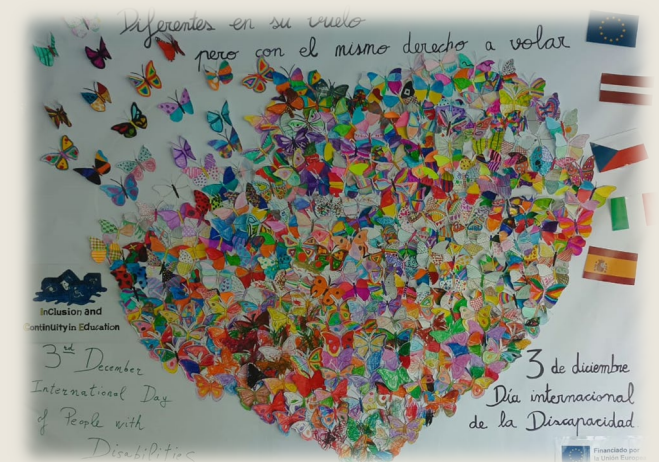 Diferentes en su vuelo
pero con el mismo derecho a volar
Inclusion and
Continuity in Education
3rd December
International Day
of People with
Disabilities
3 de diciembre
Día internacional
de la Discapacidad
Financiado por
la Unión Europea